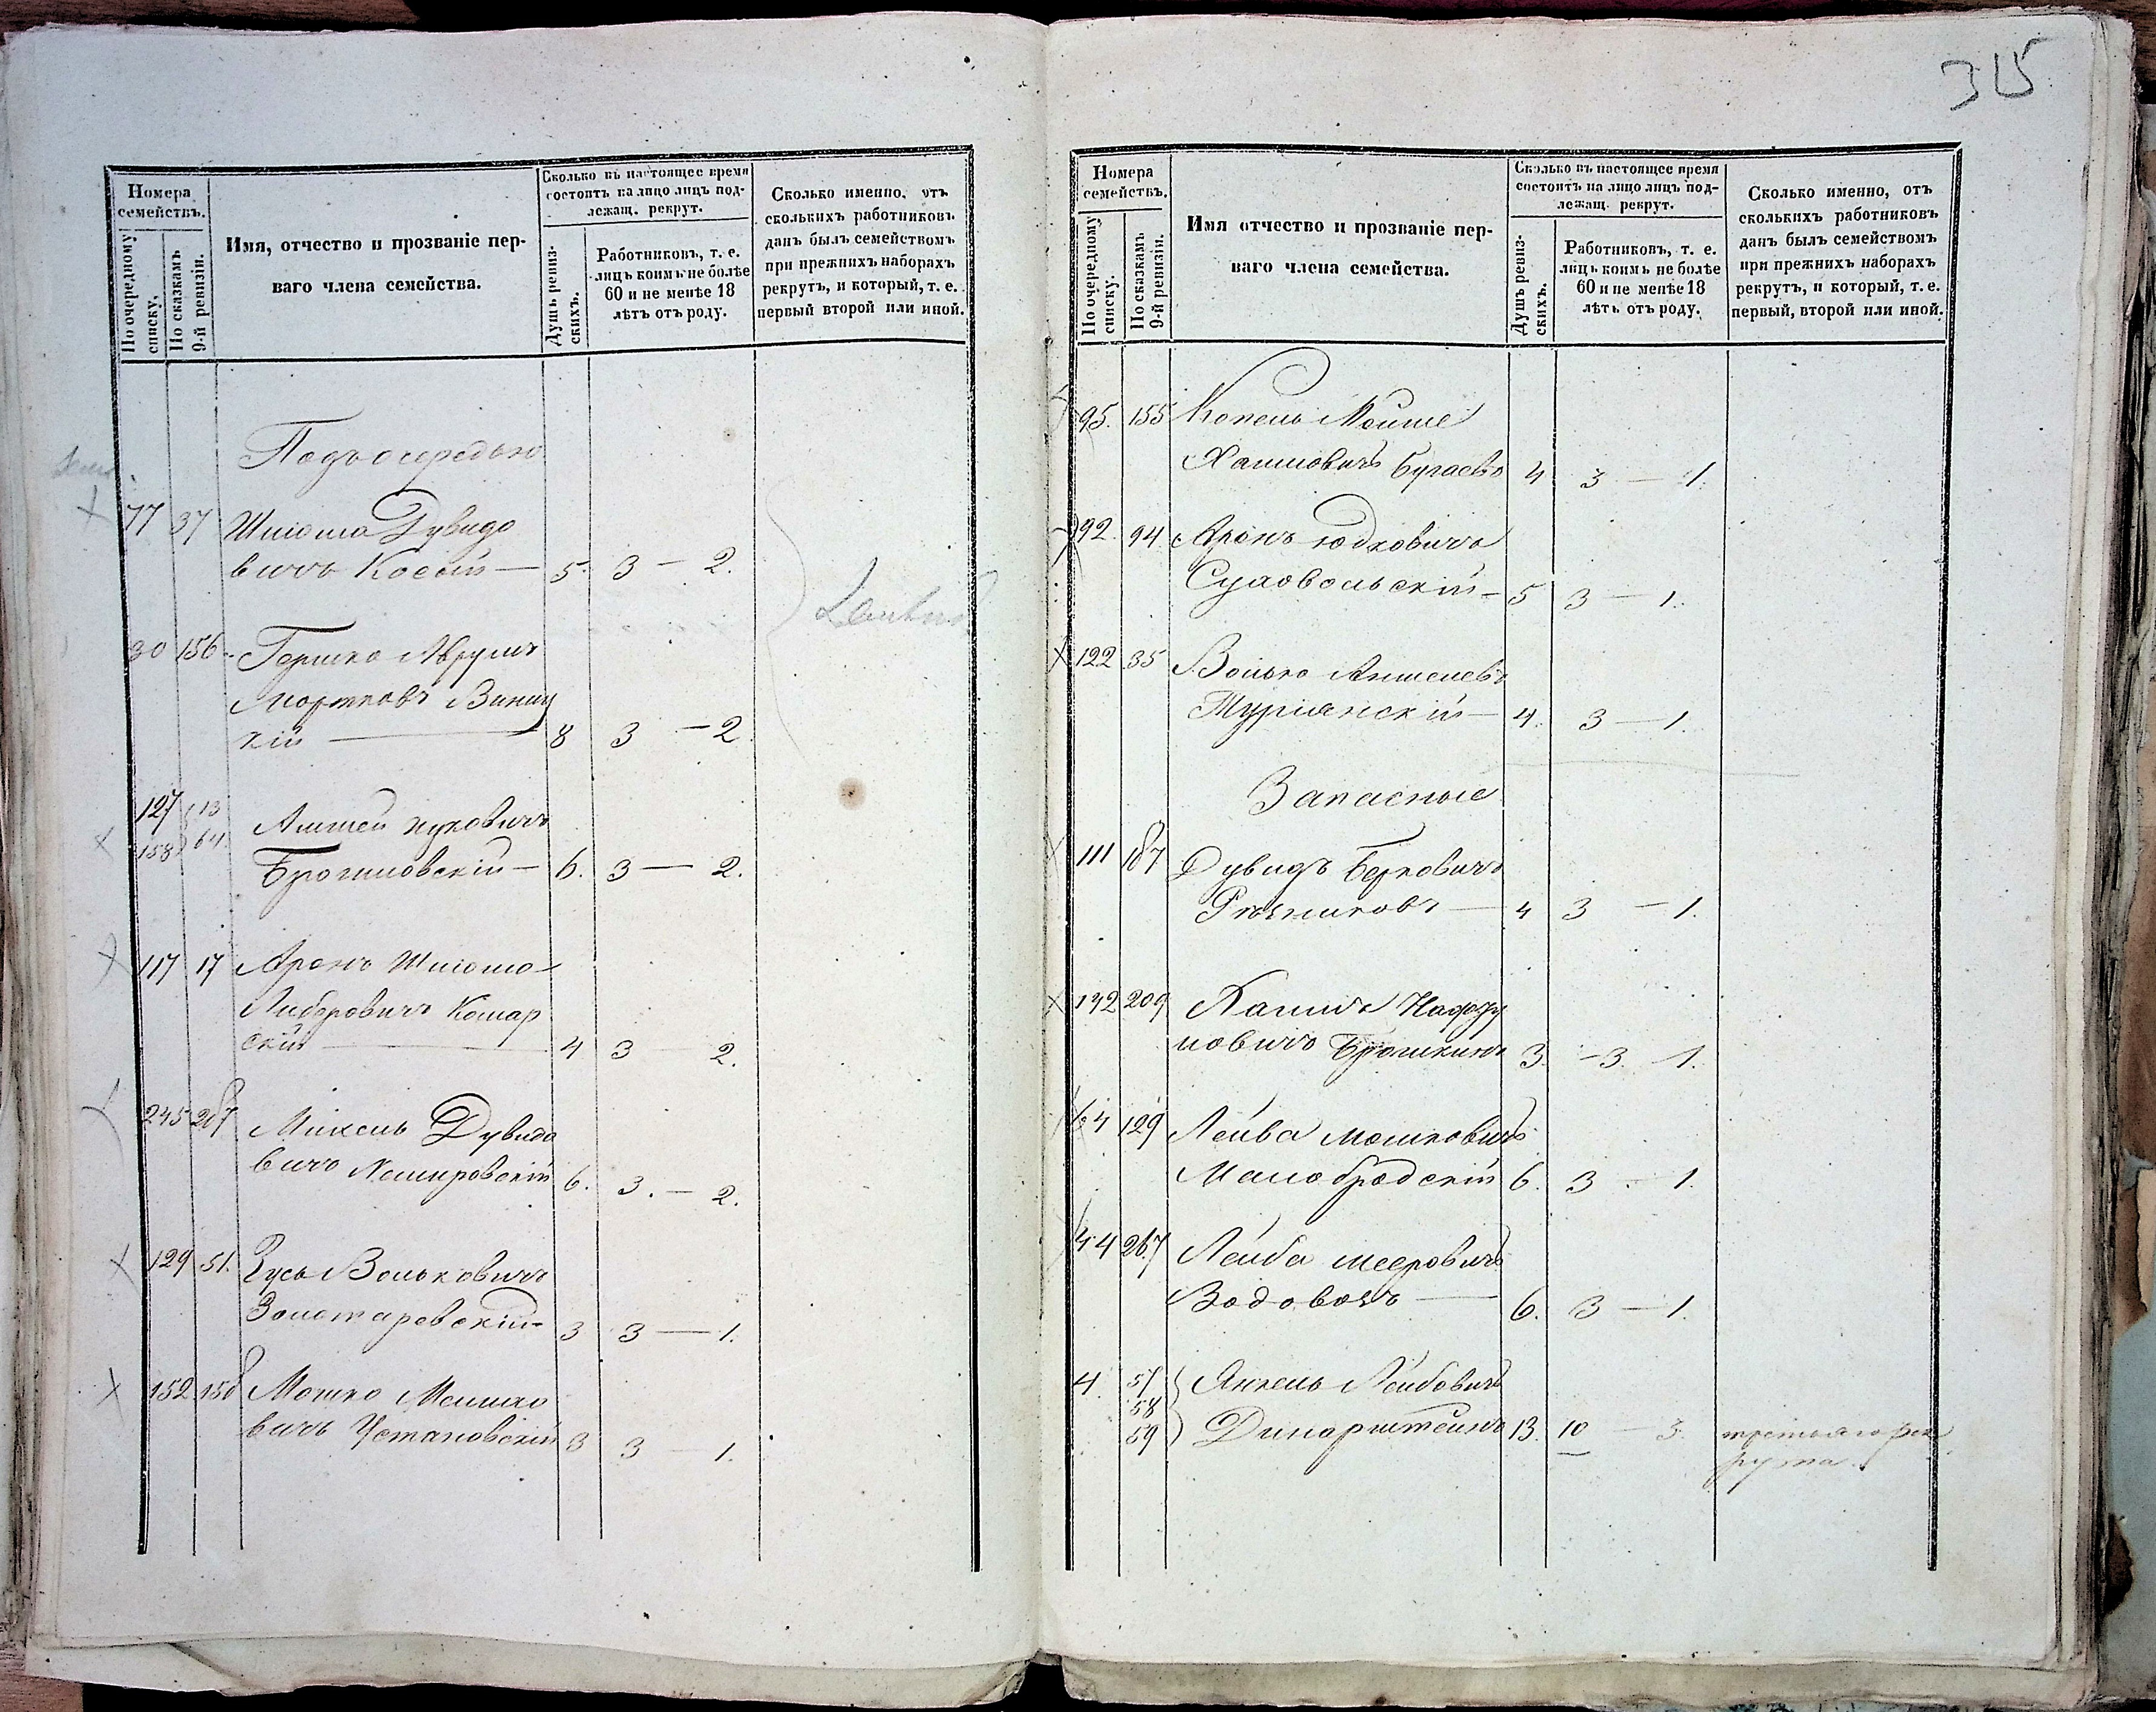 315
Номера
семействъ.
По очередному
списку.
По сказкамъ
9-й ревизіи.
Имя, отчество и прозваніе пер-
ваго члена семейства.
Сколько въ настоящее время
состоитъ на лицо лицъ под-
лежащ. рекрут.
Душъ ревиз-
скихъ.
Работниковъ, т. е.
лицъ коимъ не болѣе
60 и не менѣе 18
лѣтъ отъ роду.
Сколько именно, отъ
сколькихъ работниковъ
данъ былъ семействомъ
при прежнихъ наборахъ
рекрутъ, и который, т. е.
первый второй или иной.
Подъ очередью
77 37 Шліома Дувидо
вичъ Косый — 5. 3 — 2.
30 156 Гершко Аврумъ
Мортковъ Виниц
кій — 8 3 — 2
127 13
158 64 Аншель
6. 3 — 2.
117 17 Аронъ Шліомо
Либеровичъ Комар
скій — 4 3 2.
245 287 Михель Дувидо
вичъ Немировскій 6. 3. — 2.
129 51. Зусь Вольковичъ
Золотаревскій - 3 3 — 1.
152 158 Мошко
вичъ Установскій 3 3 — 1.
Номера
семействъ.
По очередному
списку.
По сказкамъ
9-й ревизіи.
Имя отчество и прозваніе пер-
ваго члена семейства.
Сколько въ настоящее время
состоитъ на лицо лицъ под-
лежащ. рекрут.
Душъ ревиз-
скихъ.
Работниковъ, т. е.
лицъ коимъ не болѣе
60 и не менѣе 18
лѣтъ отъ роду.
Сколько именно, отъ
сколькихъ работниковъ
данъ былъ семействомъ
при прежнихъ наборахъ
рекрутъ, и который, т. е.
первый, второй или иной.
95. 155 Копель Мойше
Хаимовичъ Бугаевъ 4 3 — 1.
92. 94 Аронъ Юдковичъ
Судовольскій - 5 3 — 1.
122 35 Волько Аншелевъ
Турianскій — 4. 3 — 1.
Запасные
111 187 Дувидъ Берковичъ
Рѣзниковъ — 4 3 — 1.
132 209 Хаимъ Нафту
ловичъ 3. - 3. 1.
129 Лейба Мошковичъ
Малобродскій 6. 3 1.
44 267 Лейба Мееровичъ
Водовозъ — 6. 3 — 1.
4. 57
58
59 Янкель Лейбовичъ
Динарштейнъ 13. 10 — 3. третьяго рек
рута.